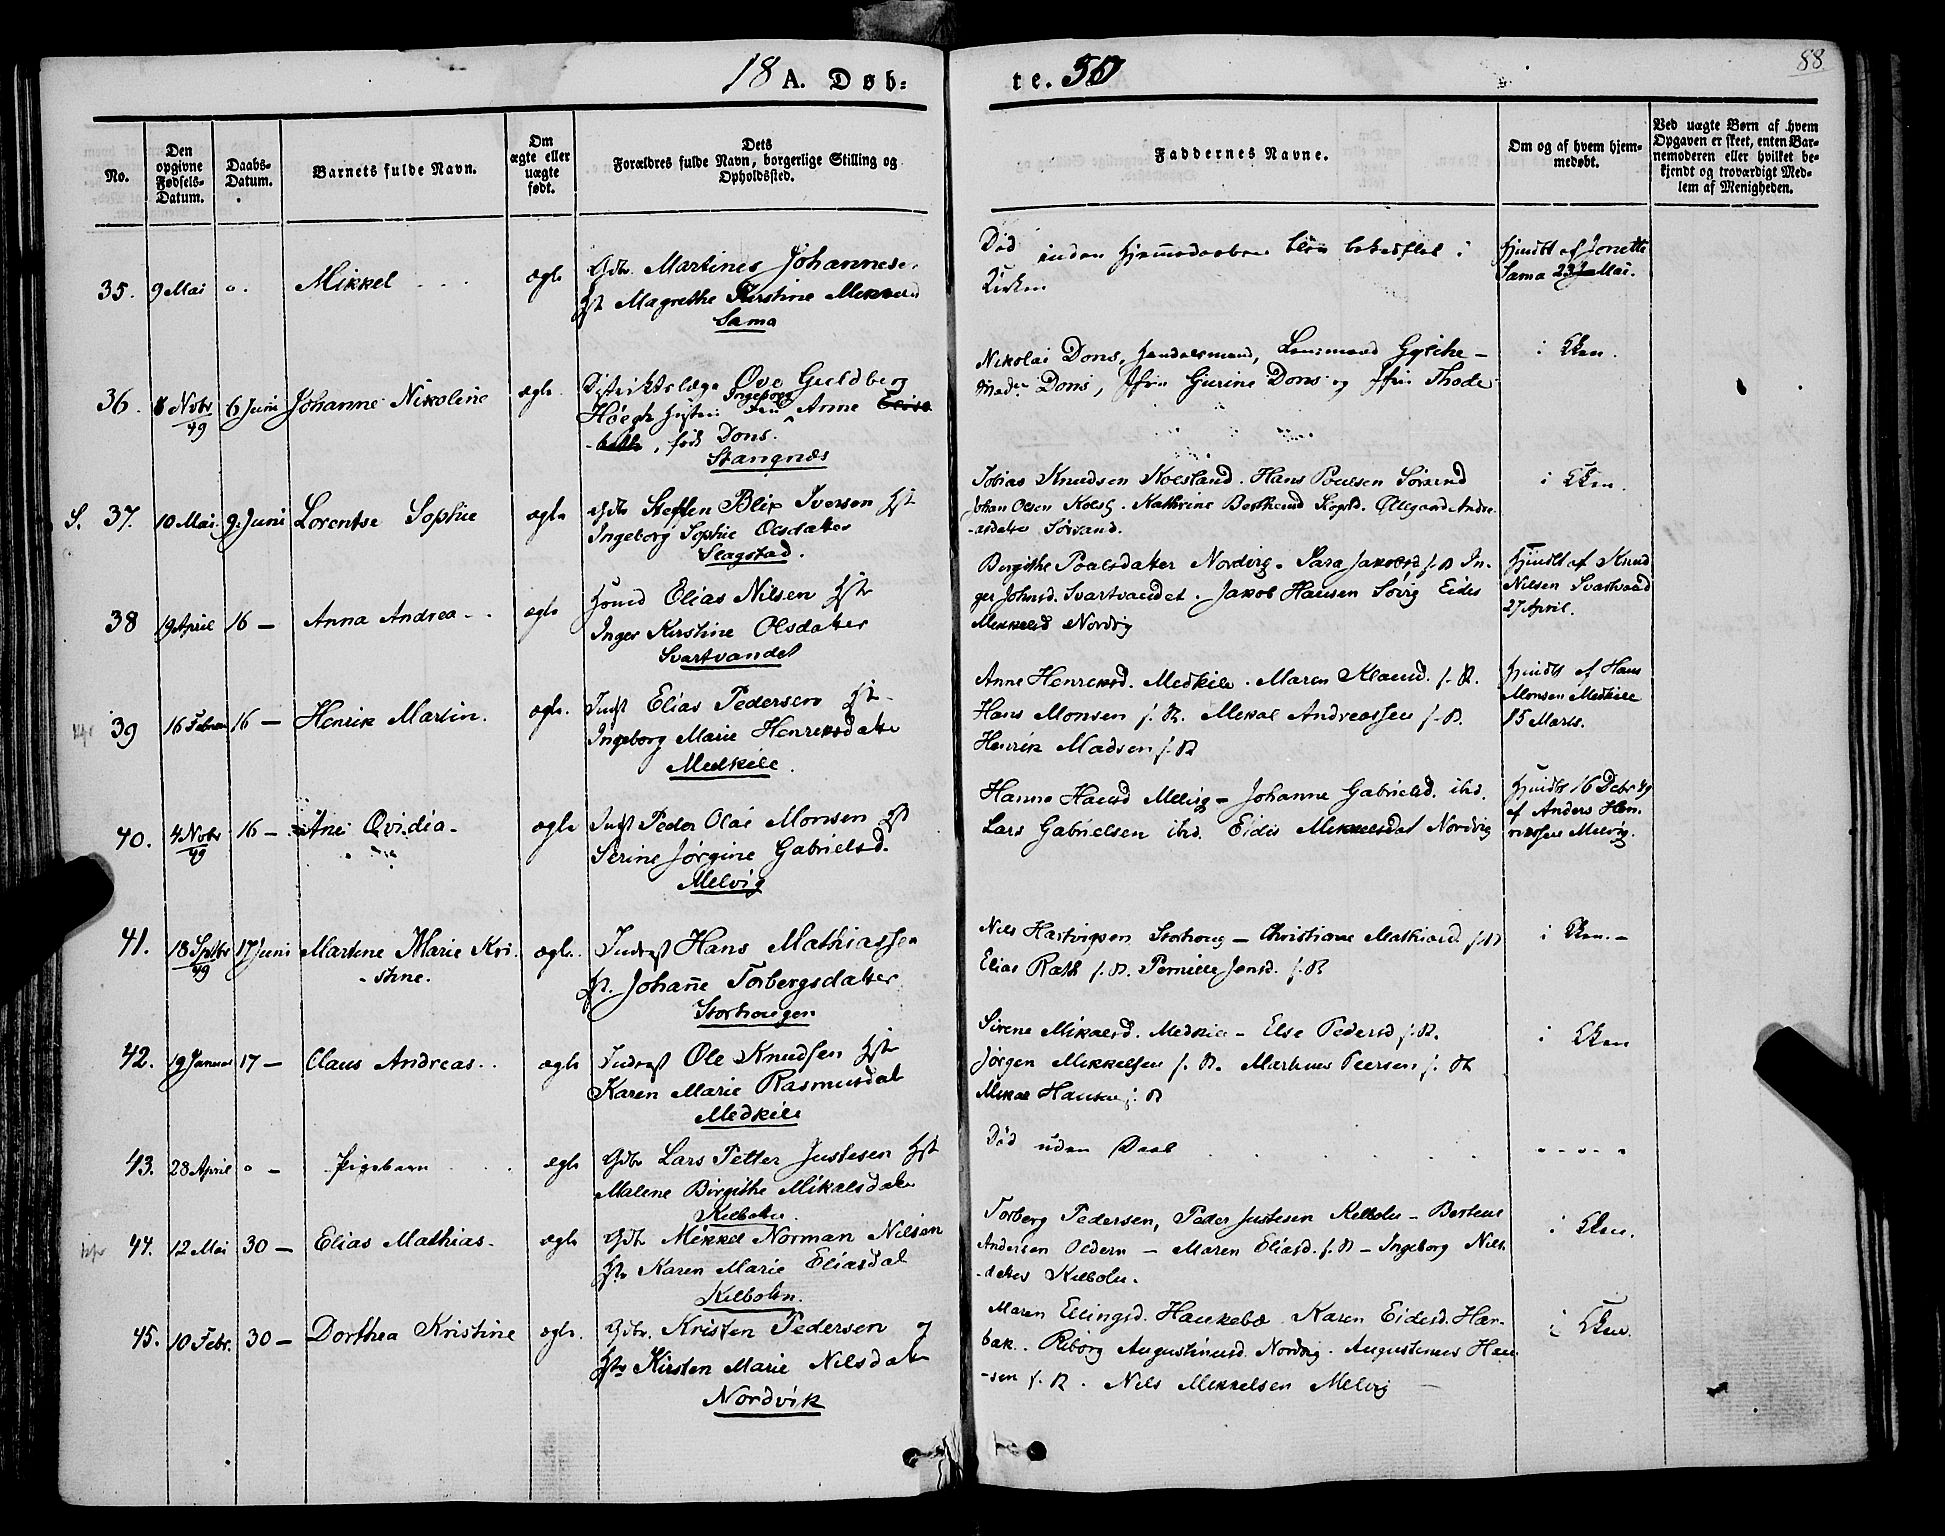 18 A. Døb-
te. 50
88.
No.
Den
opgivne
Fødsels-
Datum.
Daabs-
Datum.
Barnets fulde Navn.
Om
ægte eller
uægte
født.
Dets
Forældres fulde Navn, borgerlige Stilling og
Opholdssted.
Faddernes Navne.
Om og af hvem hjem-
medøbt.
Ved uægte Børn af hvem
Opgaven er skeet, enten Bar-
nemoderen eller hvilket be-
kjendt og troværdigt Med-
lem af Menigheden.
35. 9 Mai Mikkel
Martines Johannes.
Magrethe Kirstine
Sama
Død inden
Kirken
hjmdbt af Jonette
Sama 23 Mai.
36. 8 Novbr 49 6 Juni Johanne Nikoline
Distriktslæge Ove Guldberg
Høegh Ingeborg Anne
født Dons.
Stangnæs
Nikolai Dons, Handelsmand, Lensmand
Mad. Dons, Jfr. Gjurine Dons og Jfr. Thode
i Kken.
S. 37. 10 Mai 9 Juni Lorentse Sophie
Gdbr Steffen Blix Iversen Hst
Ingeborg Sophie Olsdatter
Slagstad.
Tobias Knudsen Hans Poulsen Sørsand
Johan Olsen Kathrine
Sørsand.
i Kken.
38 19 April 16 — Anna Andrea
Elias Nilsen Hst
Inger Kirstine Olsdatter
Svartvandet
Birgithe Poulsdatter Nordvig. Sara Jakobsd s. St. In-
ger Johnsd. Svartvandet. Jakob Hansen Sørvig Eides
Mikkelsd Nordvig
Hjmdbt af Knud
Nilsen Svartvand
27 April.
39 16 Februar 16 — Henrik Martin.
Indst Elias Pedersen Hst
Ingeborg Marie Henriksdatter
Medkile.
Anne Henriksd. Medkile. Maren s. St.
Hans Monsen s. St. Mikal Andreassen s. St.
Henrik Madsen s. St
hjmdbt af Hans
Monsen Medkile
15 Marts.
40. 4 Novbr 49 16 — Ane Ovidia
Indst Peder Olai Monsen Hst
Serine Jørgine Gabrielsd.
Melvig
Hanna Hansd Melvig — Johanne Gabrielsd. ibd.
Lars Gabrielsen ibd. Eides Mikkelsdat Nordvig
hjmdbt 16 Debr 49
af Anders Hen-
rikssen Melvig.
41. 18 Septbr 49 17 Juni Martine Marie Kri-
-stine.
Inderst Hans Mathiassen
Hst. Johanne Torbergsdatter
Storhougen
Nils Hartvigsen Storhoug — Christiane Mathiasd. s. St
Elias Rath s. St. Pernille Jensd. s. St
i Kken. —
42. 19 Januar 17 — Claus Andreas
Inderst Ole Knudsen Hst
Karen Marie Rasmusdat
Medkile
Sirene Mikalsd. Medkile — Else Pedersd s. St.
Jørgen Mikkelsen s. St. Martinus Peersen s. St
Mikal Hansen s. St
i Kken
43. 28 April Pigebarn
Gdbr Lars Petter Justesen Hst
Malene Birgithe Mikalsdatter
Kilbotn.
Død uden Daab
44. 12 Mai 30 — Elias Mathias
Gdbr Mikkel Norman Nilsen
Hst Karen Marie Eliasdat
Kilbotn.
Torberg Pedersen, Peder Justesen Kilbotn —
Andersen — Maren Eliasd. s. St — Ingeborg Nils-
-datter Kilbotn.
i Kken.
45. 10 Febr. 30 — Dorthea Kristine
Gdbr. Kristen Pedersen og
Hst Kirsten Marie Nilsdatter
Nordvik
Maren Ellingsd. Haukebø Karen Eidesd. Har-
bak. Augustinusd Nordvig. Augustinus Han-
-sen s. St. Nils Mikkelsen Melvig
i Kken.